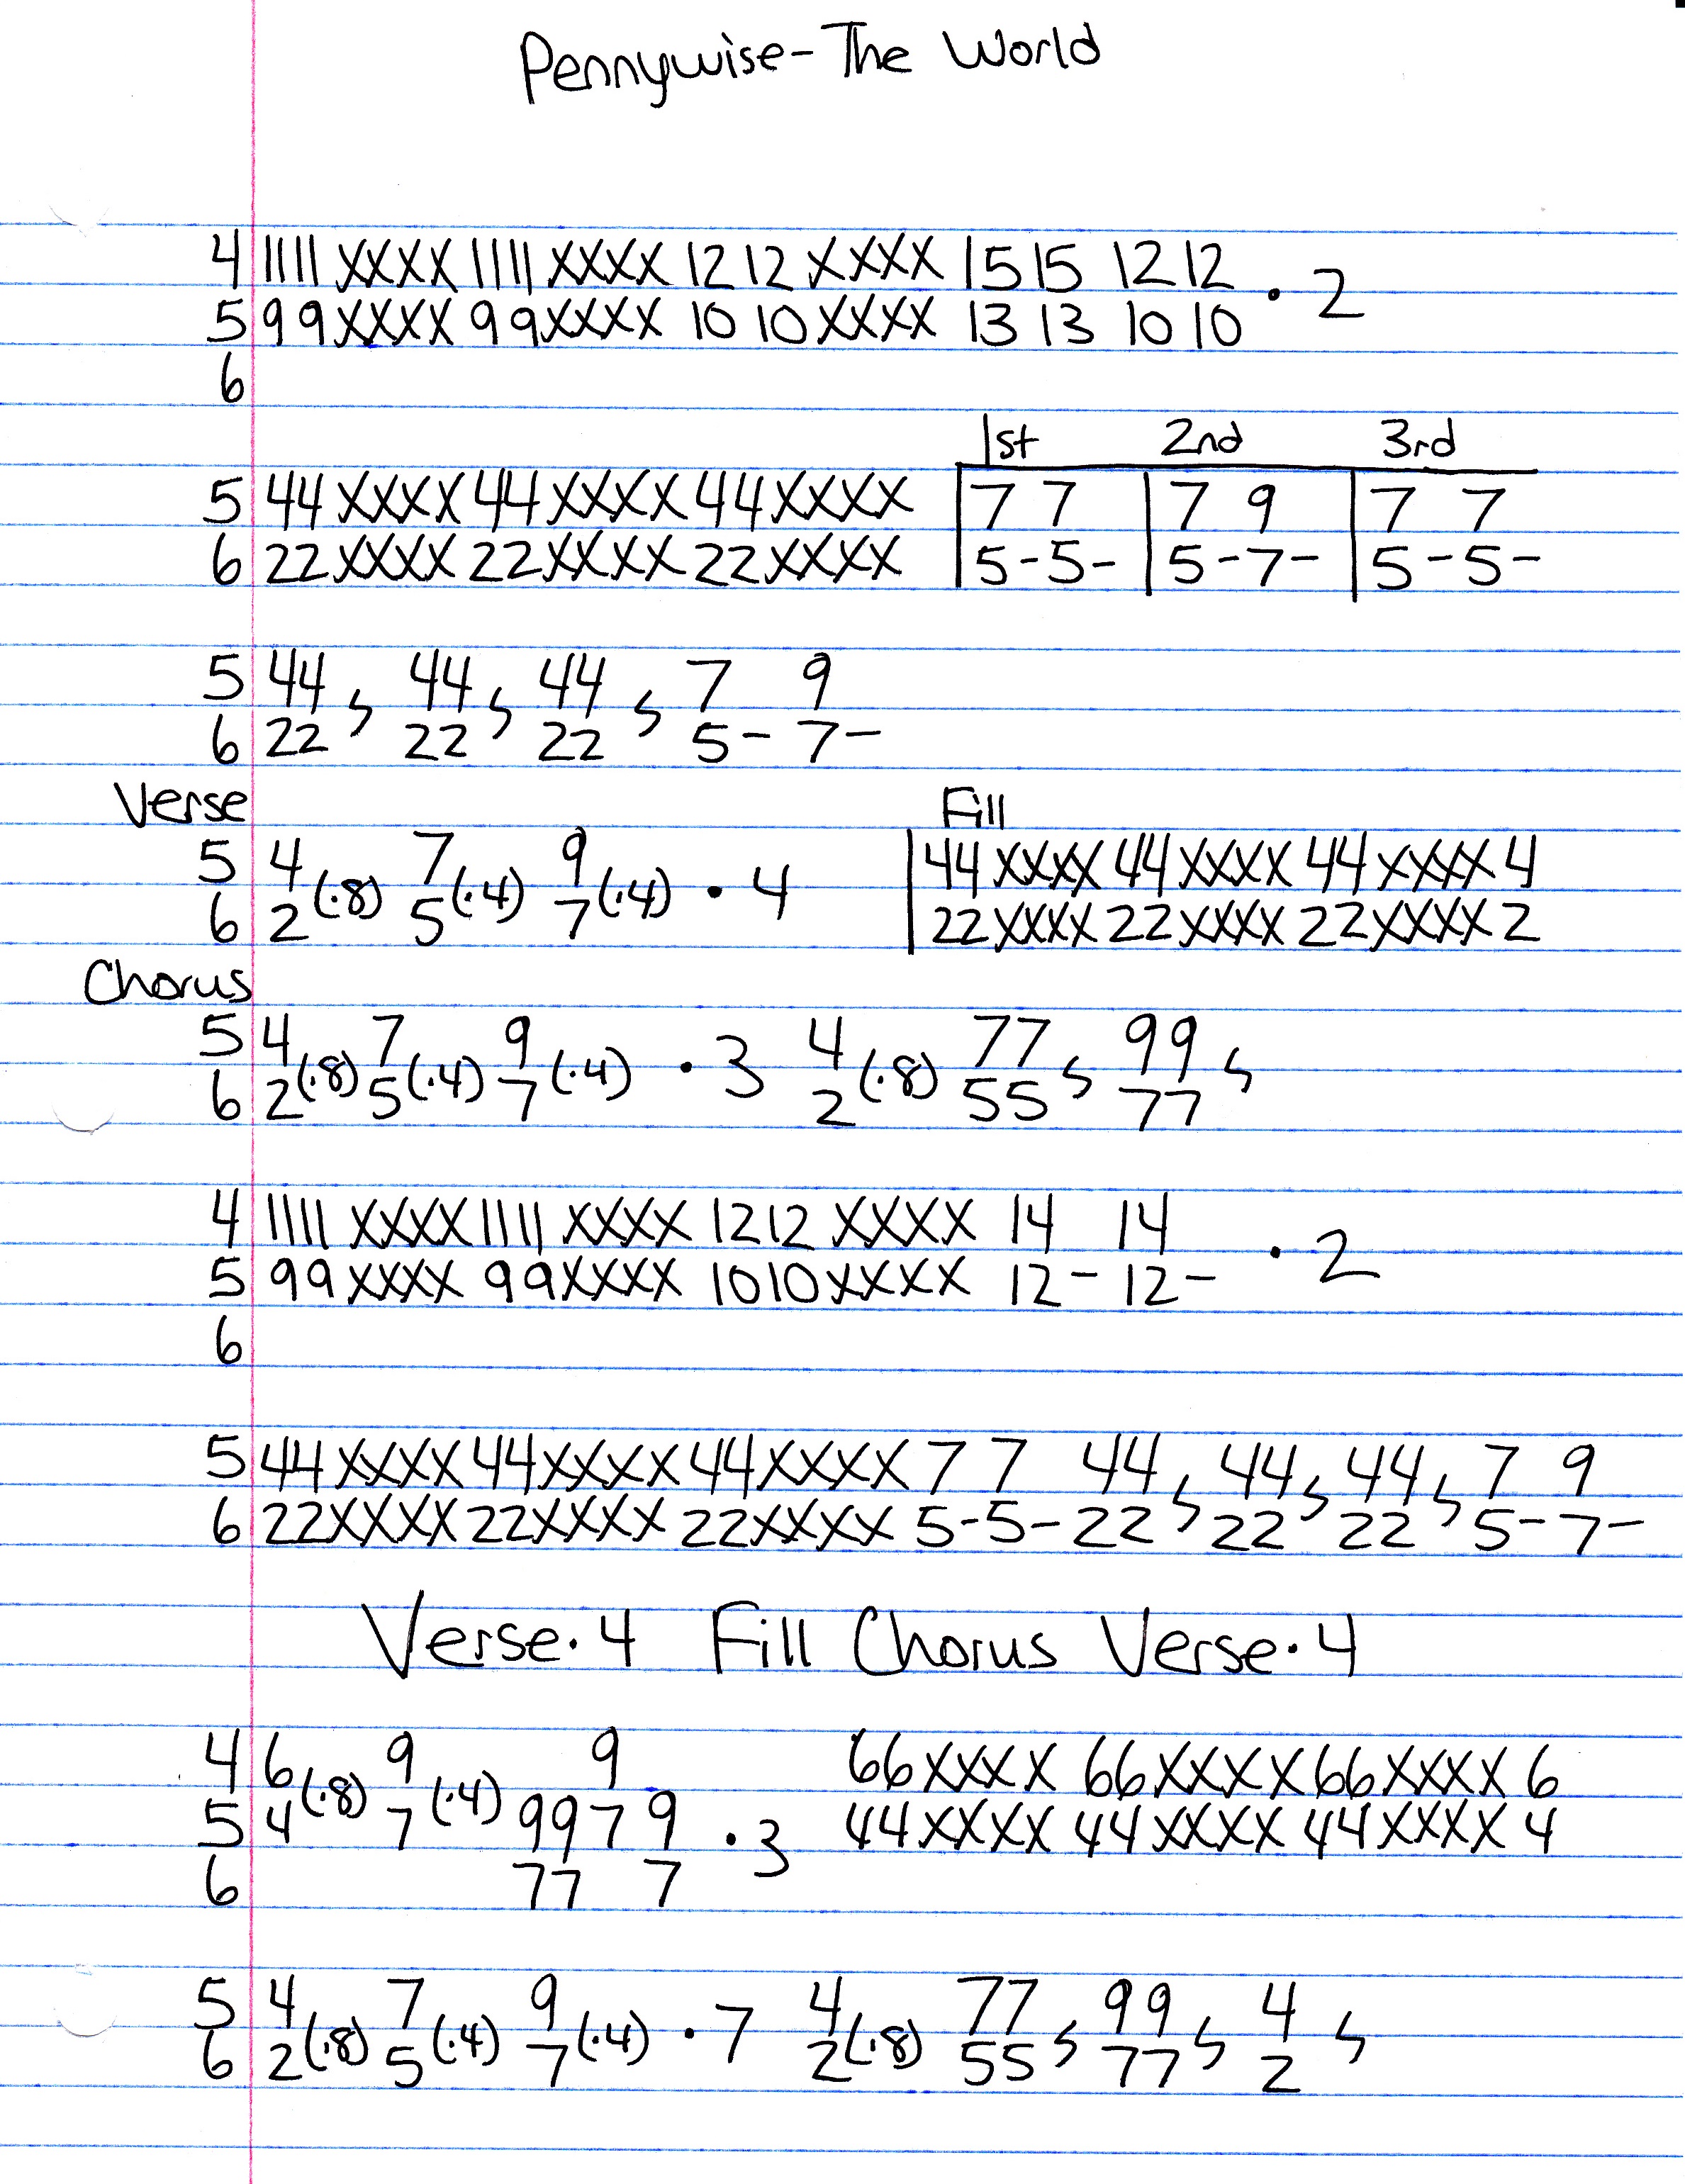 Pennywise - The World
4 11 11 XXXX 11 11 XXXX 12 12 XXXX 15 15 12 12
· 2
5 9 9 XXXX 9 9 XXXX 10 10 XXXX 13 13 10 10
6
1st 2nd 3rd
5 44 XXXX 44 XXXX 44 XXXX 7 7 7 9 7 7
6 22 XXXX 22 XXXX 22 XXXX 5-5- 5-7- 5-5-
5 44 , 44 , 44 , 7 9
6 22 22 22 5- 7-
Verse Fill
5 4 7 9 44 XXXX 44 XXXX 44 XXXX 4
(·8) (·4) (·4) · 4
6 2 5 7 22 XXXX 22 XXXX 22 XXXX 2
Chorus
5 4 7 9 4 77 99
(·8) (·4) (·4) · 3 (·8)
6 2 5 7 2 55 77
4 11 11 XXXX 11 11 XXXX 12 12 XXXX 14 14
· 2
5 99 XXXX 99 XXXX 10 10 XXXX 12 - 12 -
6
5 44 XXXX 44 XXXX 44 XXXX 7 7 44 , 44 , 44 , 7 9
6 22 XXXX 22 XXXX 22 XXXX 5-5- 22 22 22 5- 7-
Verse · 4 Fill Chorus Verse · 4
4 6 9 9 66 XXXX 66 XXXX 66 XXXX 6
(·8) (·4)
5 4 7 99 7 9 · 3 44 XXXX 44 XXXX 44 XXXX 4
6 77 7
5 4 7 9 4 77 99 4
(·8) (·4) (·4) · 7 (·8)
6 2 5 7 2 55 77 2